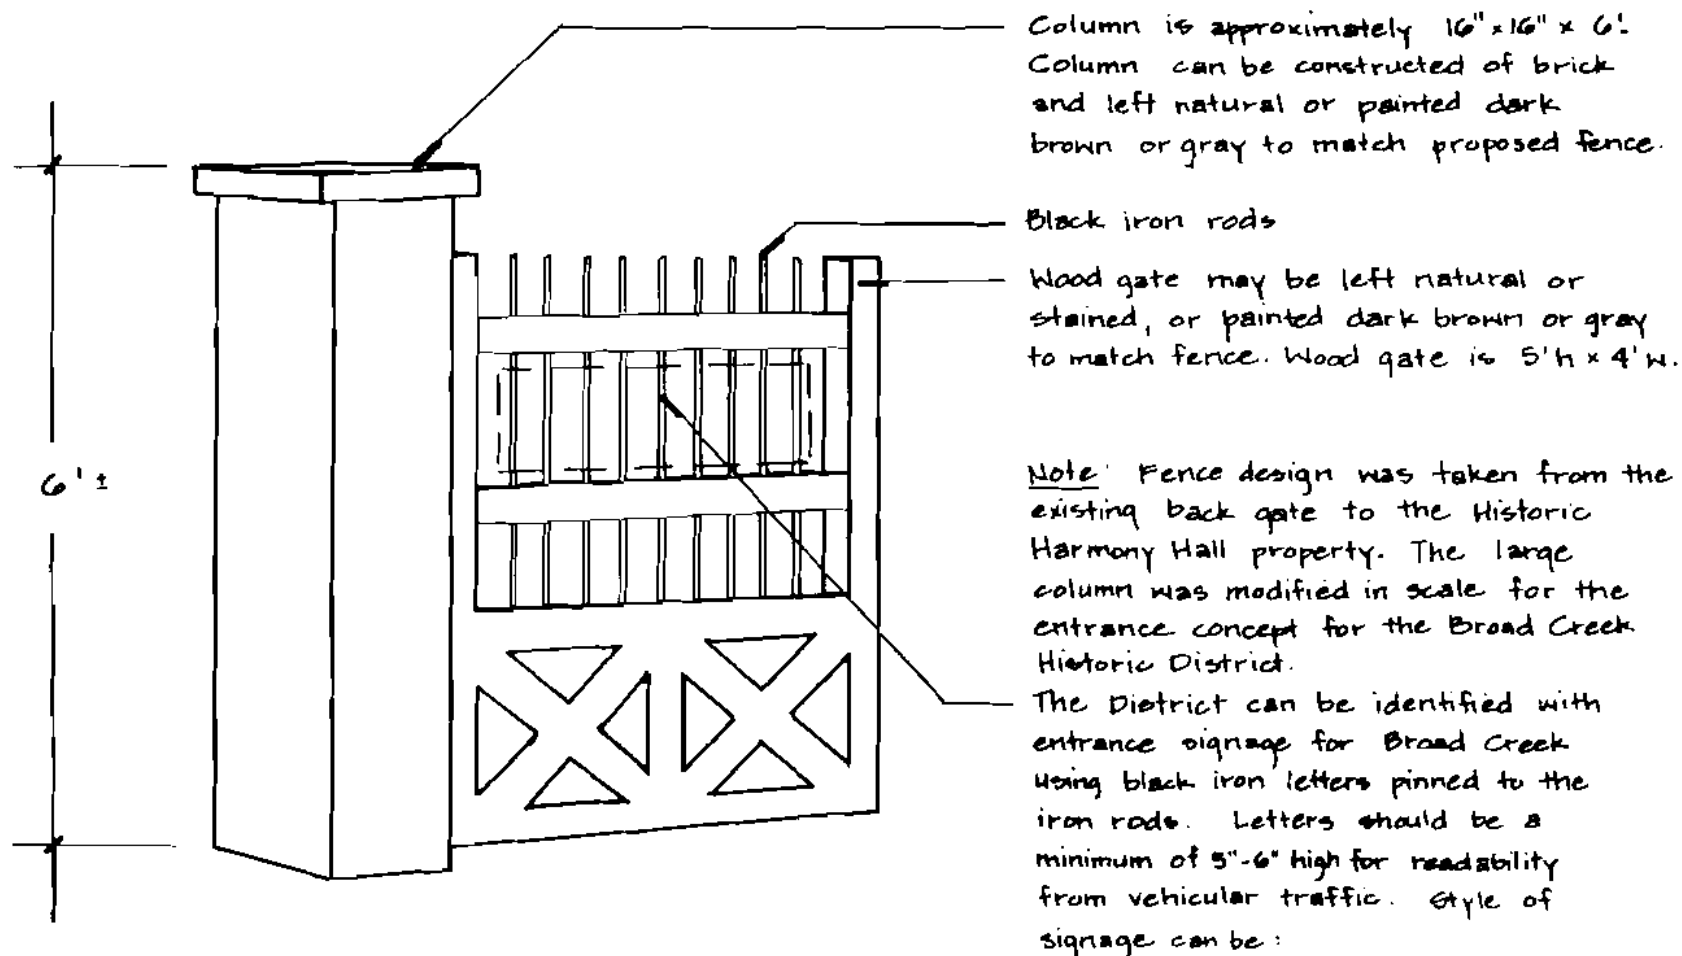 Column is approximately 16" x 16" x 6'.
Column can be constructed of brick
and left natural or painted dark
brown or gray to match proposed fence.
Black iron rods
Wood gate may be left natural or
stained, or painted dark brown or gray
to match fence. Wood gate is 5'h x 4'w.
6' ±
Note: Fence design was taken from the
existing back gate to the Historic
Harmony Hall property. The large
column was modified in scale for the
entrance concept for the Broad Creek
Historic District.
The District can be identified with
entrance signage for Broad Creek
using black iron letters pinned to the
iron rods. Letters should be a
minimum of 5"-6" high for readability
from vehicular traffic. Style of
signage can be: